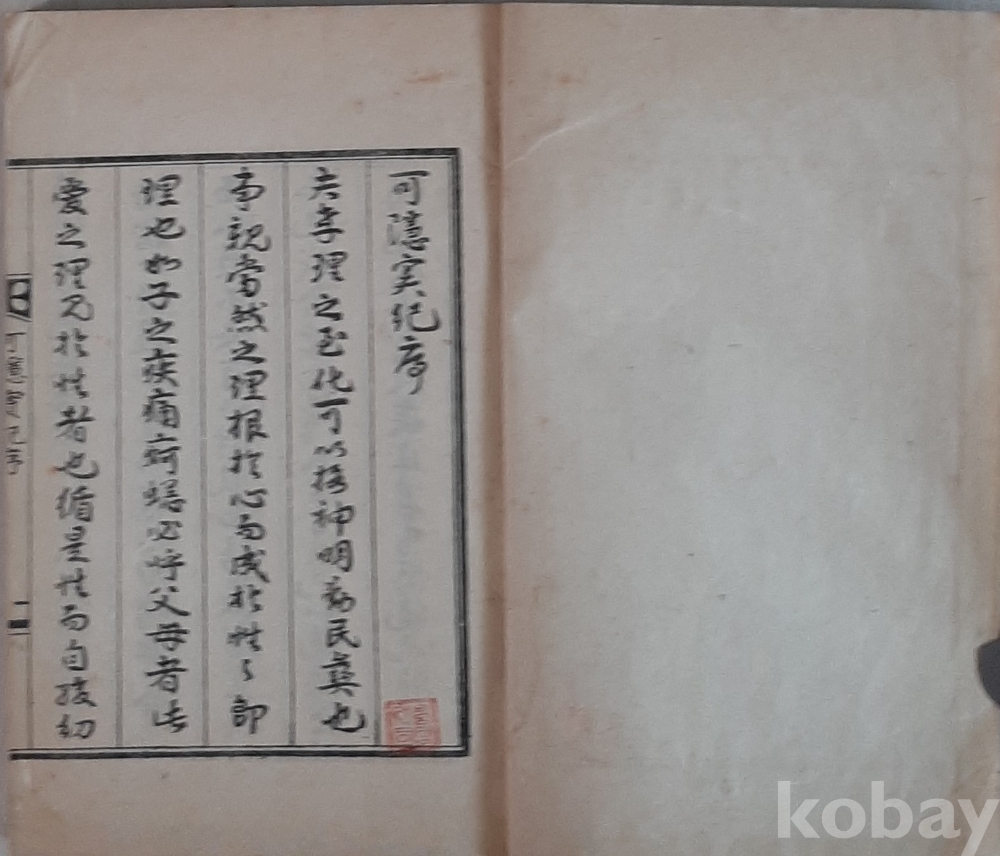 可隱實紀序
夫孝理之至化可以格神明励民彝也
事親當然之理根於心而成於性々即
理也如子之疾痛疴癢必呼父母者此
愛之理見於性者也循是性而自孩幼
可隱實紀序
kobay